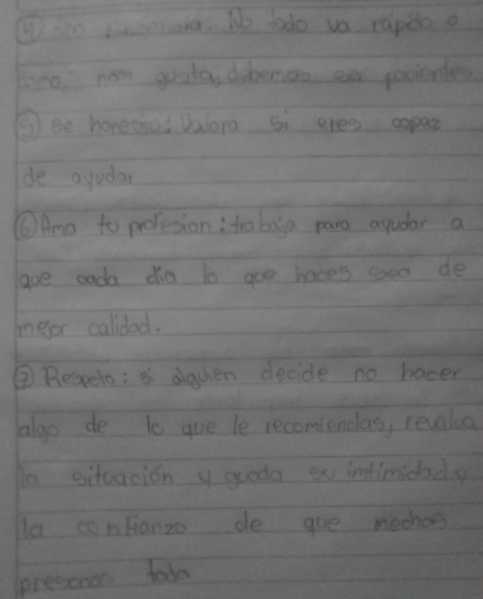 ④ . No todo va rápido o
como nos gusta, debemos pacientes
⑤ Se honesto: Valora si eres capaz
de ayudar
⑥ Ama tu profesion: trabaja para ayudar a
que cada dia lo que haces sea de
mejor calidad.
⑦ Respeto: si alguien decide no hacer
algo de lo que le recomiendas, revalua
la situación y guada su intimidad y
la confianza de que
toda